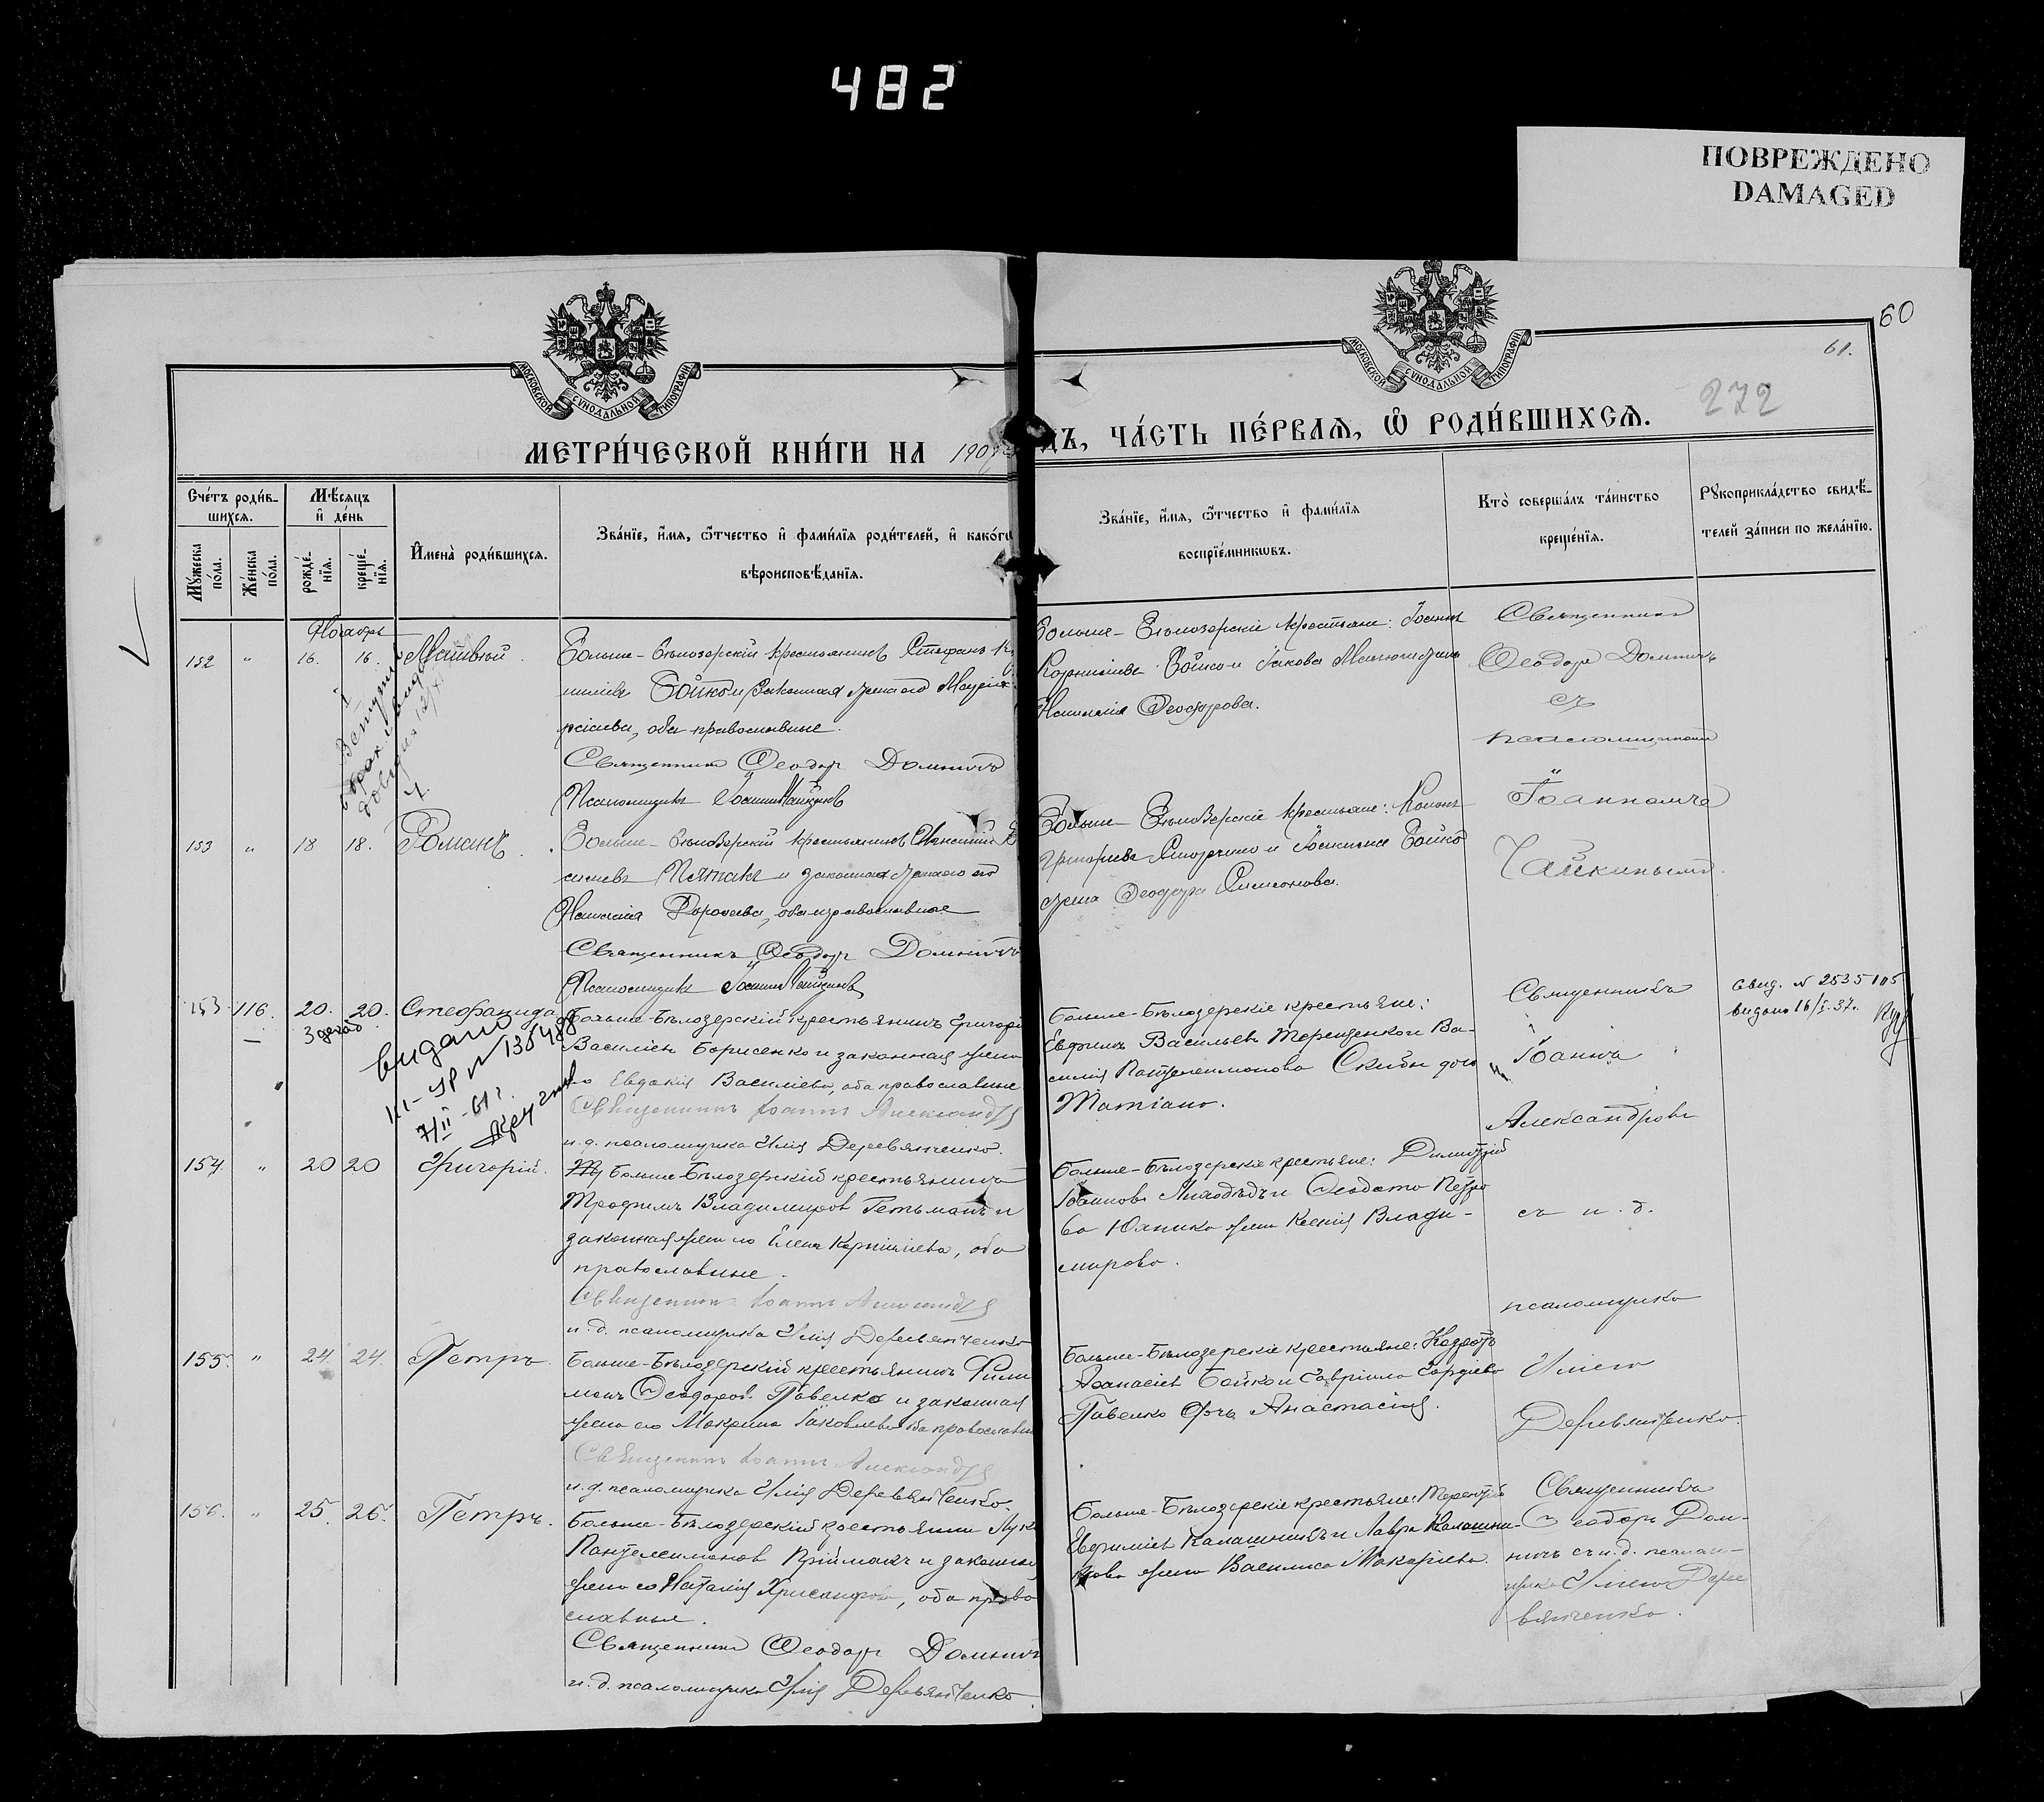 482
ПОВРЕЖДЕНО
DAMAGED
60
61.
272
МОСКОВСКОЙ СУНОДАЛЬНОЙ ТИПОГРАФІИ
МОСКОВСКОЙ СУНОДАЛЬНОЙ ТИПОГРАФІИ
МЕТРИ́ЧЕСКОЙ КНИ́ГИ НА 1907
ДЪ, ЧА́СТЬ ПЕ́РВАѦ, Ѽ РОДИ́ВШИХСѦ.
Сче́тъ роди́в-
шихся.
Мѣ́сяцъ
и҆ де́нь
Мꙋ́жеска
по́ла.
Же́нска
по́ла.
рожде́-
нїя.
креще́-
нїя.
И҆мена̀ роди́вшихся.
Зва́нїе, и҆́мя, ѻ҆́тчество и҆ фами́лїя роди́телей, и҆ како́гѡ
вѣроисповѣ́данїя.
Зва́нїе, и҆́мя, ѻ҆́тчество и҆ фами́лїя
воспрїе́мникѡвъ.
Кто̀ соверша́лъ та́инство
креще́нїя.
Рꙋкоприкла́дство свидѣ́-
телей за́писи по жела́нїю.
Ноябрь
152 " 16. 16. Матвѣй
Больше-Бѣлозерскій крестьянинъ Стефанъ
Бойко и законная жена его
оба православные.
Священникъ Ѳеодоръ Домничъ
Псаломщикъ Іоаннъ Чайкинъ
Больше-Бѣлозерскіе крестьяне: Іоаннъ
Корниліевъ Бойко и Іакова жена
Наталія Ѳеодорова.
Священникъ
Ѳеодоръ Домничъ
съ
псаломщикомъ
Іоанномъ
Чайкинымъ.
153 " 18 18. Романъ.
Больше-Бѣлозерскій крестьянинъ
и законная жена его
Наталія Дороѳеева, оба православные
Священникъ Ѳеодоръ Домничъ
Псаломщикъ Іоаннъ Чайкинъ
Больше-Бѣлозерскіе крестьяне:
Григорьевъ и Бойко
жена Ѳеодора Симеонова.
153 116. 20. 20. Стефанида
видано
III-ЯР № 135488
7/II-61 г.
Больше-Бѣлозерскій крестьянинъ Григорі
Василіевъ Борисенко и законная жена
его Евдокія Василіева, оба православные
Священникъ Іоаннъ Александровъ
и. д. псаломщика Илія Деревянченко.
Больше-Бѣлозерскіе крестьяне:
Евфимъ Васильевъ Терещенко и Ва-
силія Пантелеимонова Скибы дочь
Матіана.
Священникъ
Іоаннъ
Александровъ
свид. № 2535105
видано 16/I.37г.
154. " 20 20 Григорій.
Больше-Бѣлозерскій крестьянинъ
Трофимъ Владимировъ Гетьманъ и
законная жена его Елена Корниліева, оба
православные.
Священникъ Іоаннъ Александровъ
и. д. псаломщика Илія Деревянченко
Больше-Бѣлозерскіе крестьяне: Димитрій
Іоанновъ Лиходѣдъ и Ѳеодота Петро
ва Юхника жена Ксенія Влади-
мирова.
съ и. д.
псаломщика
155. " 24. 24. Петръ
Больше-Бѣлозерскій крестьянинъ Фили
монъ Ѳеодоровъ Павелко и законная
жена его Макрина Іаковлева оба православн
Священникъ Іоаннъ Александровъ
и. д. псаломщика Илія Деревянченко.
Больше-Бѣлозерскіе крестьяне: Кодратъ
Аѳанасіевъ Бойко и Гавріила Гордіева
Павелко дочь Анастасія.
Иліею
Деревянченко.
156. " 25. 26. Петръ.
Больше-Бѣлозерскій крестьянинъ Лука
Пантелеимоновъ Пріймакъ и законная
жена его Наталія Хрисанфова, оба право
славные.
Священникъ Ѳеодоръ Домничъ
и. д. псаломщика Илія Деревянченко
Больше-Бѣлозерскіе крестьяне: Терентій
Евфиміевъ Калашникъ и Лавра Калашни-
кова жена Василиса Макаріева.
Священникъ
Ѳеодоръ Дом-
ничъ съ и. д. псалом-
щика Иліею Дере
вянченко.